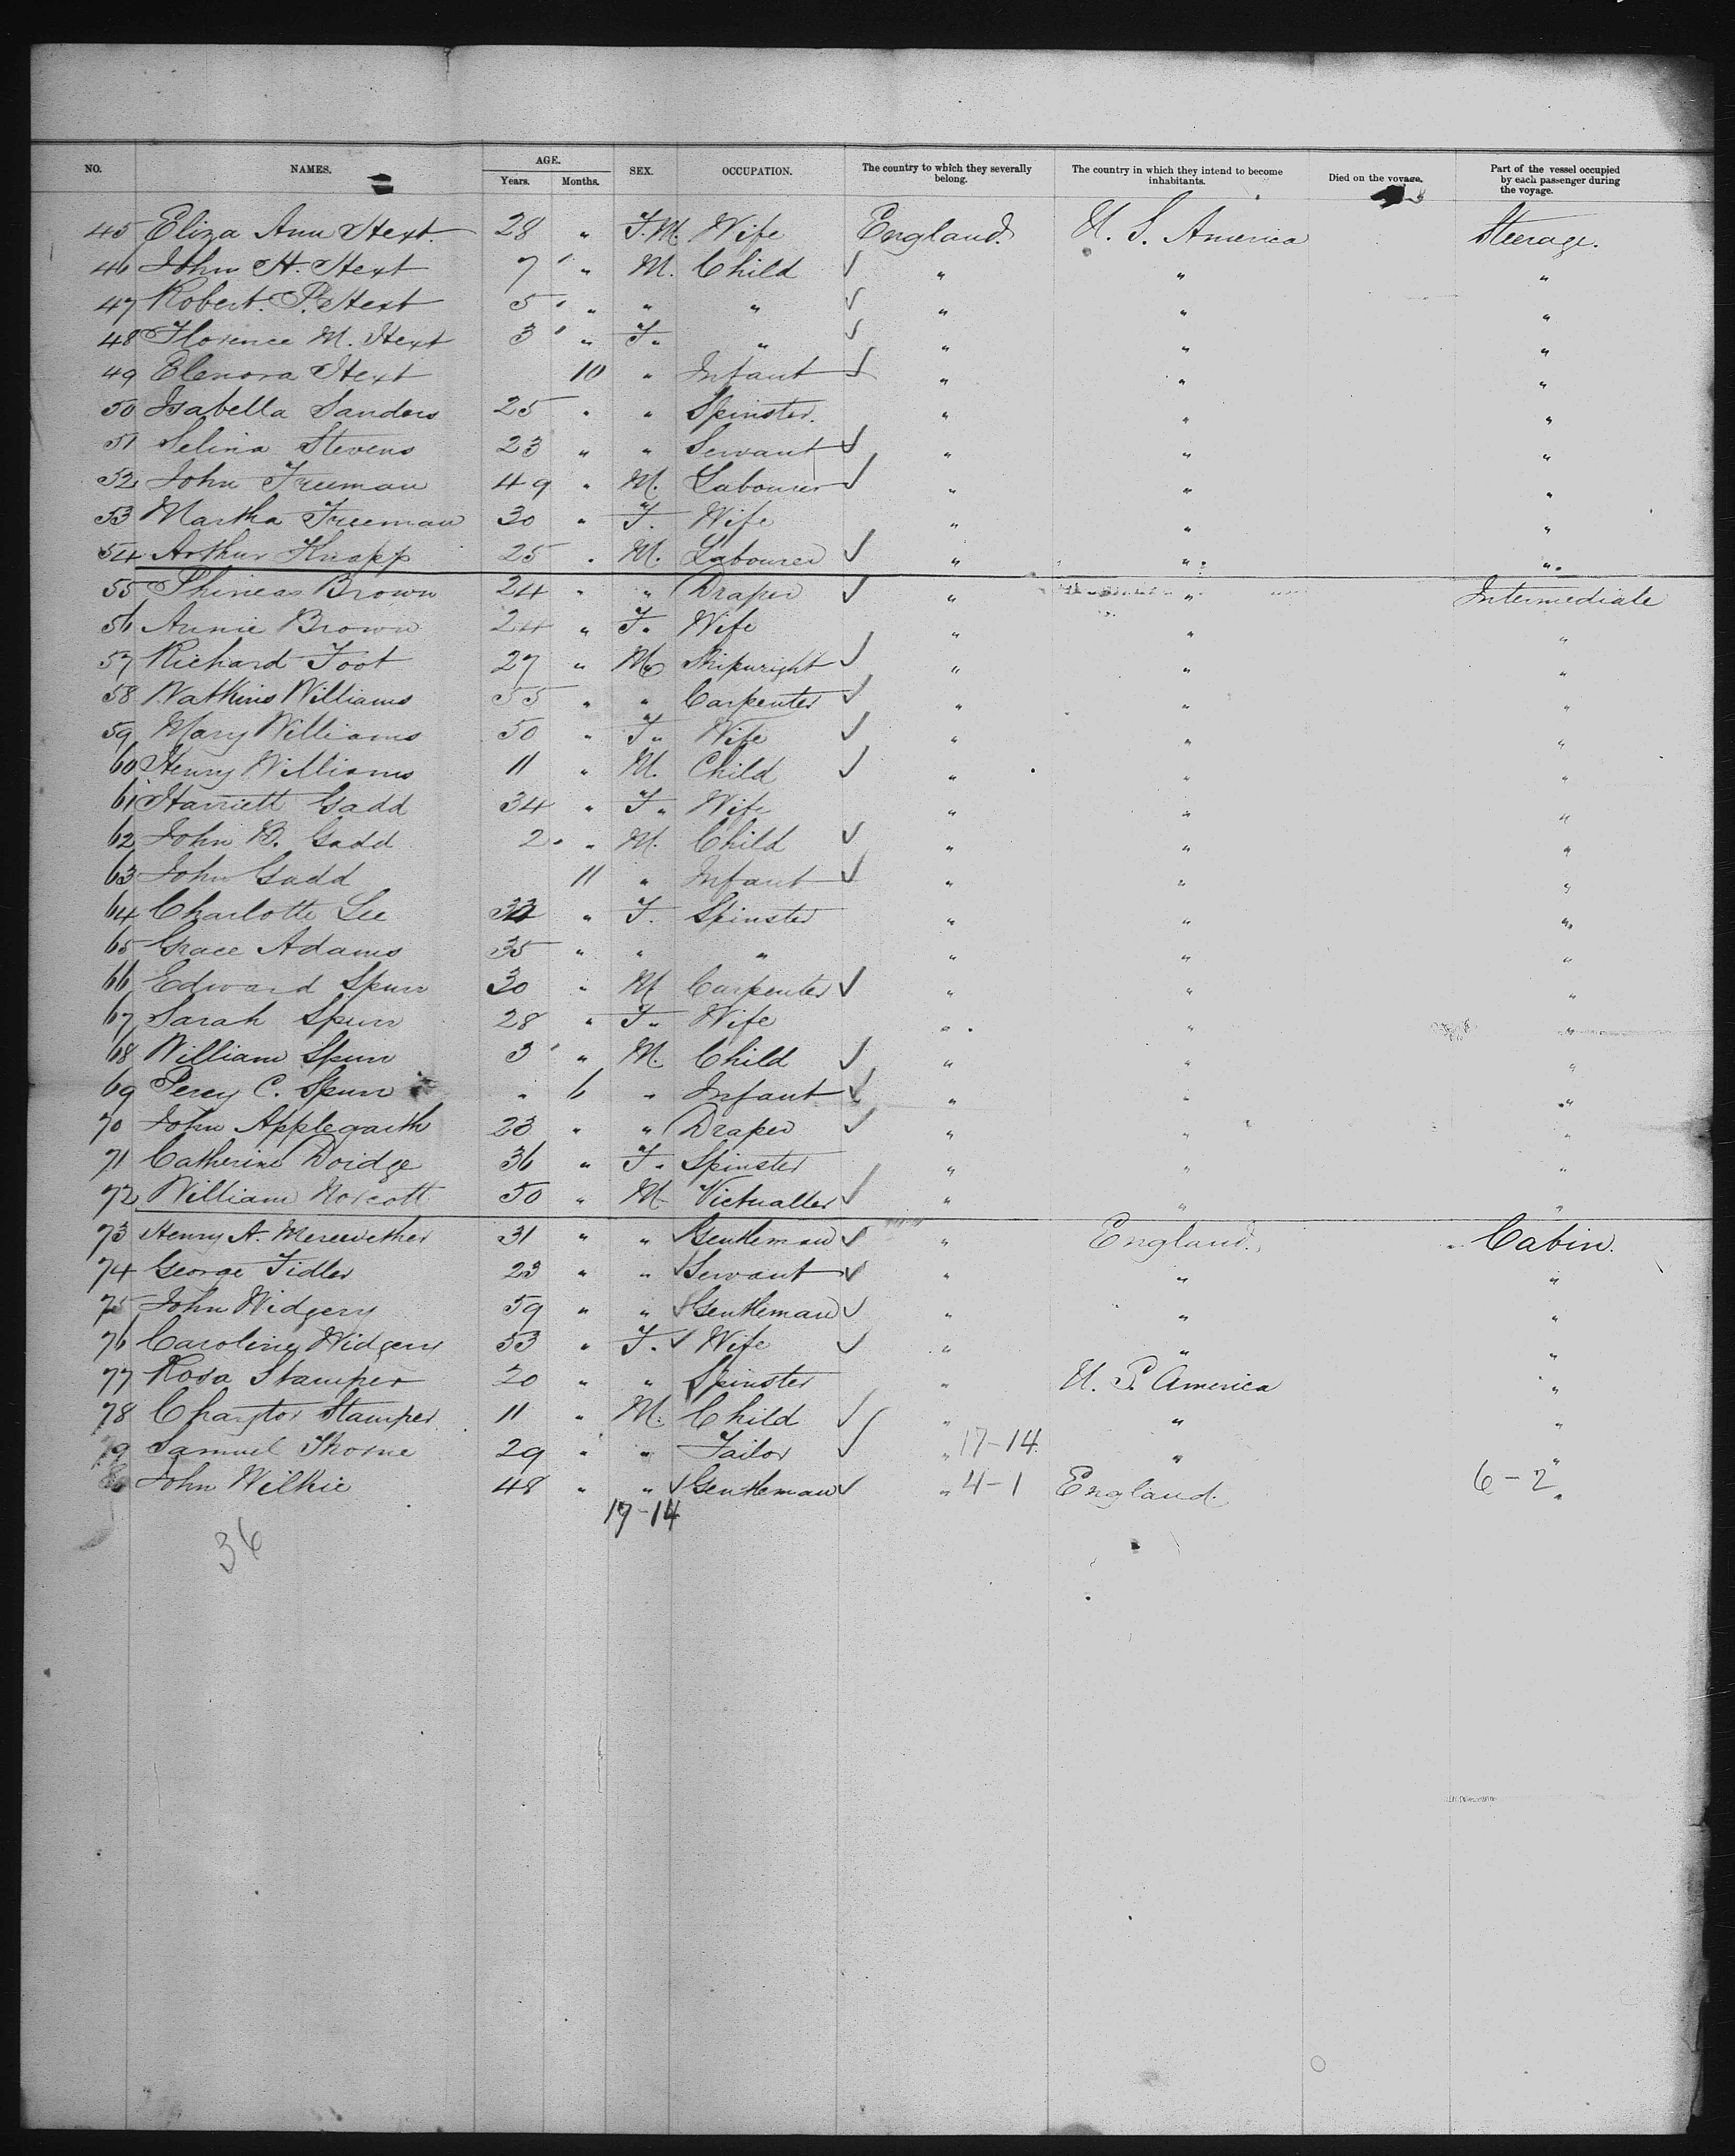 NO. NAMES. AGE. Years. Months. SEX. OCCUPATION. The country to which they severally belong. The country in which they intend to become inhabitants. Died on the voyage. Part of the vessel occupied by each passenger during the voyage.
45 Eliza Ann Hext. 28 " F. M. Wife England. U. S. America Steerage.
46 John H. Hext 7 " M. Child ✓ " " "
47 Robert. P. Hext 5 " " " ✓ " " "
48 Florence M. Hext 3 " F. " ✓ " " "
49 Elenora Hext 10 " Infant ✓ " " "
50 Isabella Sanders 25 " " Spinster. " " "
51 Selina Stevens 23 " " Servant ✓ " " "
52 John Freeman 49 " M. Labourer ✓ " " "
53 Martha Freeman 30 " F. Wife " " "
54 Arthur Knapp 25 " M. Labourer ✓ " " "
55 Phineas Brown 24 " " Draper ✓ " " Intermediate
56 Annie Brown 24 " F. Wife " " "
57 Richard Foot 27 " M Shipwright ✓ " " "
58 Watkins Williams 55 " " Carpenter ✓ " " "
59 Mary Williams 50 " F. Wife ✓ " " "
60 Henry Williams 11 " M. Child ✓ " " "
61 Harriett Gadd 34 " F. Wife " " "
62 John B. Gadd 2 " M. Child ✓ " " "
63 John Gadd 11 " Infant ✓ " " "
64 Charlotte Lee " F. Spinster " " "
65 Grace Adams 35 " " " " " "
66 Edward Spurr 30 " M Carpenter ✓ " " "
67 Sarah Spurr 28 " F. Wife " " "
68 William Spurr 3 " M. Child ✓ " " "
69 Percy C. Spurr " 6 " Infant ✓ " " "
70 John Applegarth 23 " " Draper ✓ " " "
71 Catherine Doidge 36 " F. Spinster " " "
72 William Norcott 50 " M Victualler ✓ " " "
73 Henry A. Merewether 31 " " Gentleman ✓ " England. Cabin.
74 George Fidler 23 " " ✓ Servant ✓ " " "
75 John Widgery 59 " " ✓ Gentleman ✓ " " "
76 Caroline Widgery 53 " F. ✓ Wife ✓ " " "
77 Rosa Stamper 20 " " Spinster " U. S. America "
78 Chaytor Stamper 11 " M. Child ✓ " " "
79 Samuel Thorne 29 " " Tailor ✓ " 17-14 " "
80 John Wilkie 48 " " ✓ Gentleman ✓ " 4-1 England. 6-2 "
17-14
36